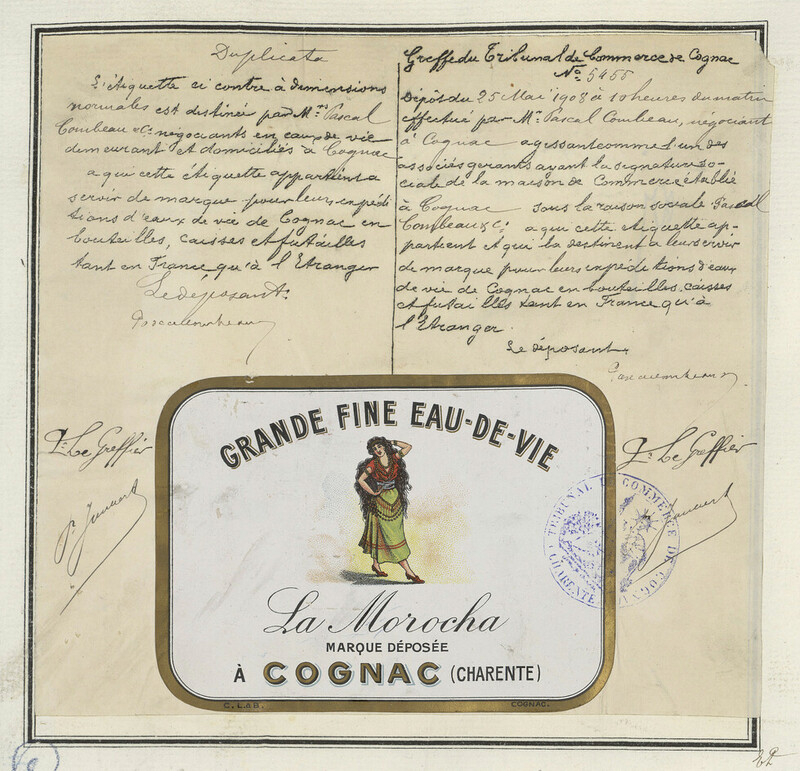 Duplicata
L'étiquette ci contre à dimensions
normales est destinée par Mrs Pascal
Combeau & Cie négociants en eaux de vie
demeurant et domiciliés à Cognac
a qui cette étiquette appartient a
servir de marque pour leurs expédi
tions d'eaux de vie de Cognac en
bouteilles, caisses et futailles
tant en France qu'à l'Etranger
Le déposant.
Greffe du Tribunal de Commerce de Cognac
No 5455
Dépôt du 25 Mai 1908 à 10 heures du matin
effectué par Mr Pascal Combeau, négociant
à Cognac agissant comme l'un des
associés gerants ayant la signature So-
ciale de la maison de Commerce établie
à Cognac sous la raison sociale Pascal
Combeau & Cie a qui cette étiquette ap-
partient et qui la destinent a leur servir
de marque pour leurs expéditions d'eaux
de vie de Cognac en bouteilles, caisses
et futailles tant en France qu'à
l'Etranger.
Le déposant
Le Greffier
Le Greffier
GRANDE FINE EAU-DE-VIE
La Morocha
MARQUE DÉPOSÉE
À COGNAC (CHARENTE)
C. LAB. COGNAC.
TRIBUNAL DE COMMERCE DE COGNAC
CHARENTE